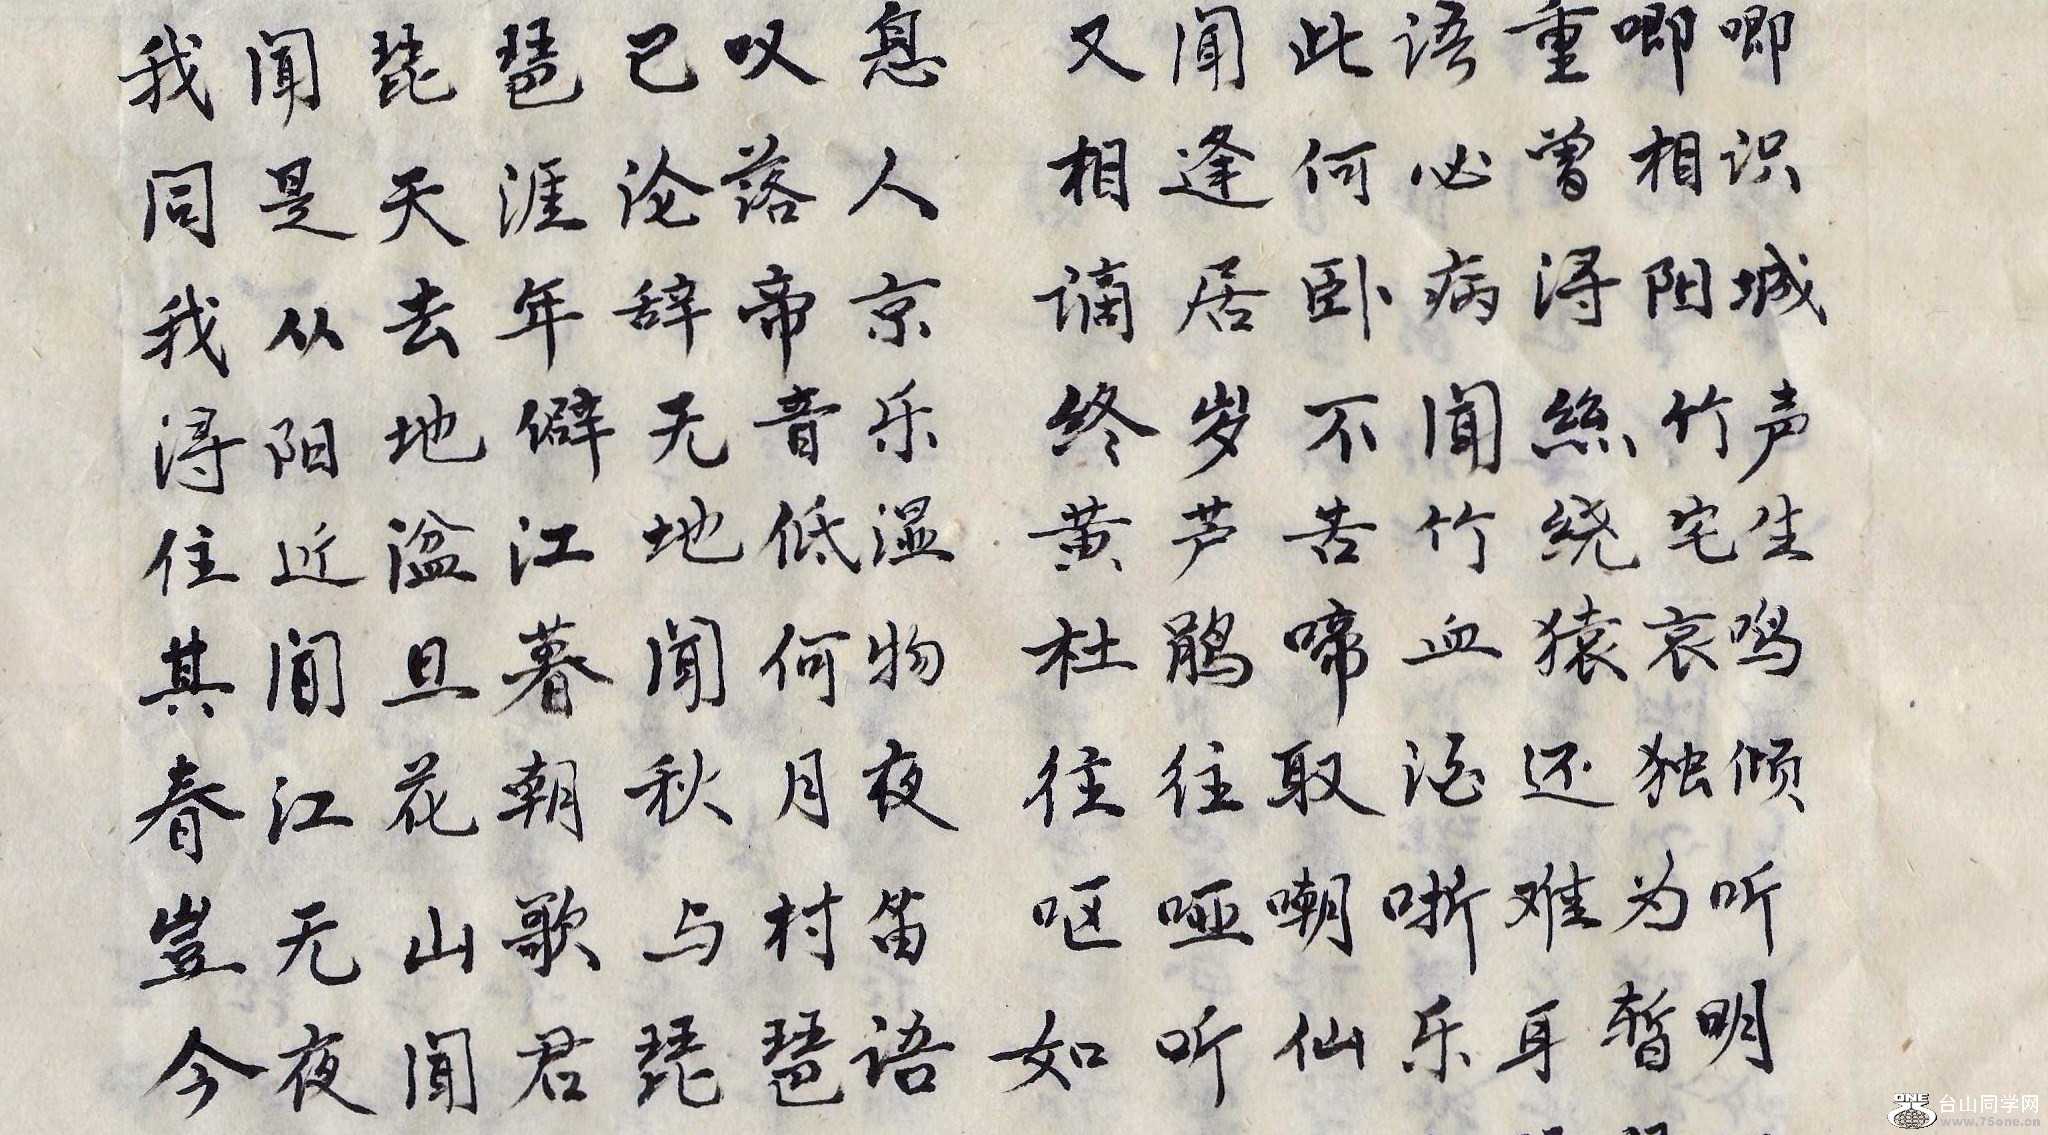 我闻琵琶已叹息 又闻此语重唧唧
同是天涯沦落人 相逢何必曾相识
我从去年辞帝京 谪居卧病浔阳城
浔阳地僻无音乐 终岁不闻絲竹声
住近湓江地低湿 黄芦苦竹绕宅生
其间旦暮闻何物 杜鹃啼血猿哀鸣
春江花朝秋月夜 往往取酒还独倾
豈无山歌与村笛 呕哑嘲哳难为听
今夜闻君琵琶语 如听仙乐耳暂明
ONE 台山同学网
www.75one.cn